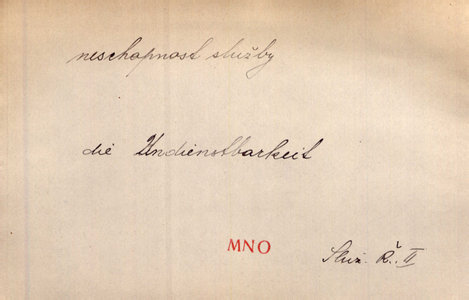 neschopnost služby
die Undienstbarkeit
MNO
Služ. Ř. II